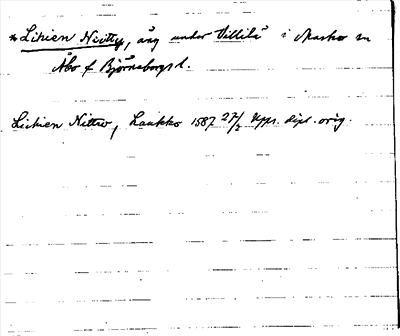 * Lihien Niitty, äng under Villilä i Masko sn
Åbo f Björneborgs l.
Liihien Nittw, Laukko 1587 27/2 Upps. dipl. orig.